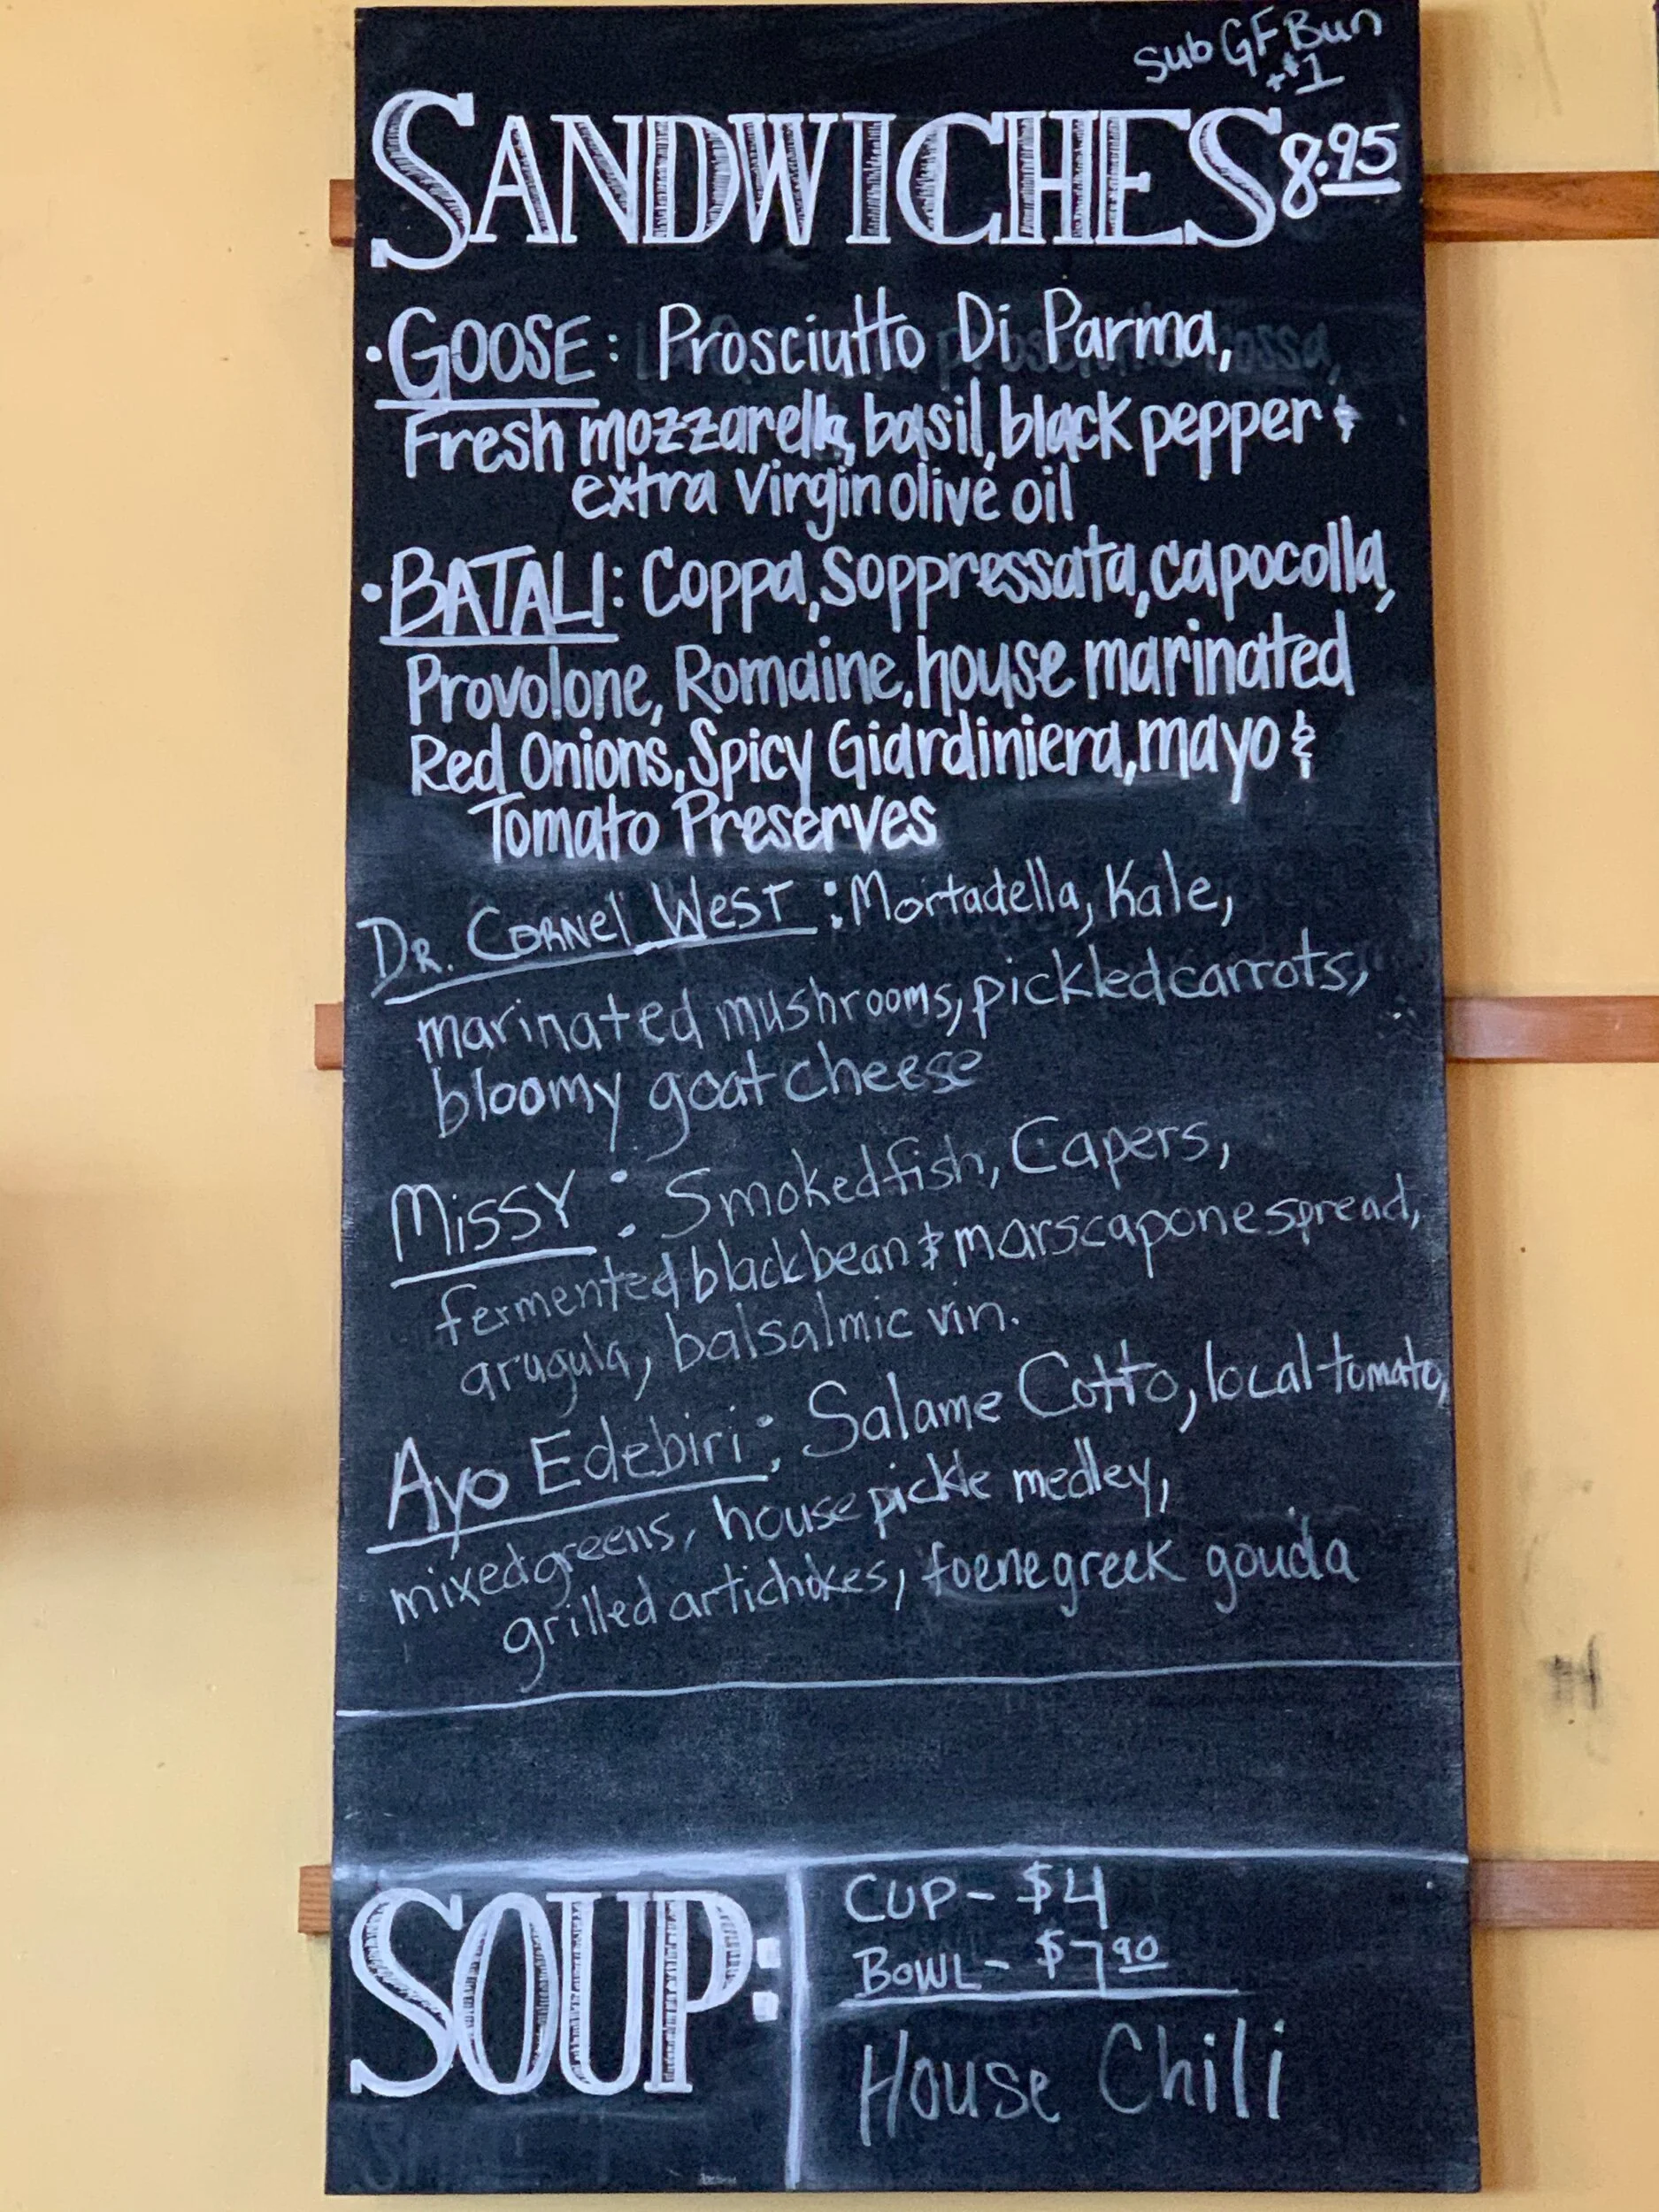 Sub GF Bun
+$1
SANDWICHES 8.95
• GOOSE: Prosciutto Di Parma,
Fresh mozzarella, basil, black pepper &
extra Virgin olive oil
• BATALI: Coppa, Soppressata, capocolla,
Provolone, Romaine, house marinated
Red Onions, Spicy Giardiniera, mayo &
Tomato Preserves
DR. CORNEL WEST: Mortadella, Kale,
marinated mushrooms, pickled carrots,
bloomy goat cheese
MISSY: Smoked fish, Capers,
fermented black bean & marscapone spread,
arugula, balsalmic vin.
Ayo Edebiri: Salame Cotto, local tomato,
mixed greens, house pickle medley,
grilled artichokes, foenegreek gouda
SOUP:
CUP - $4
BOWL - $7.90
House Chili